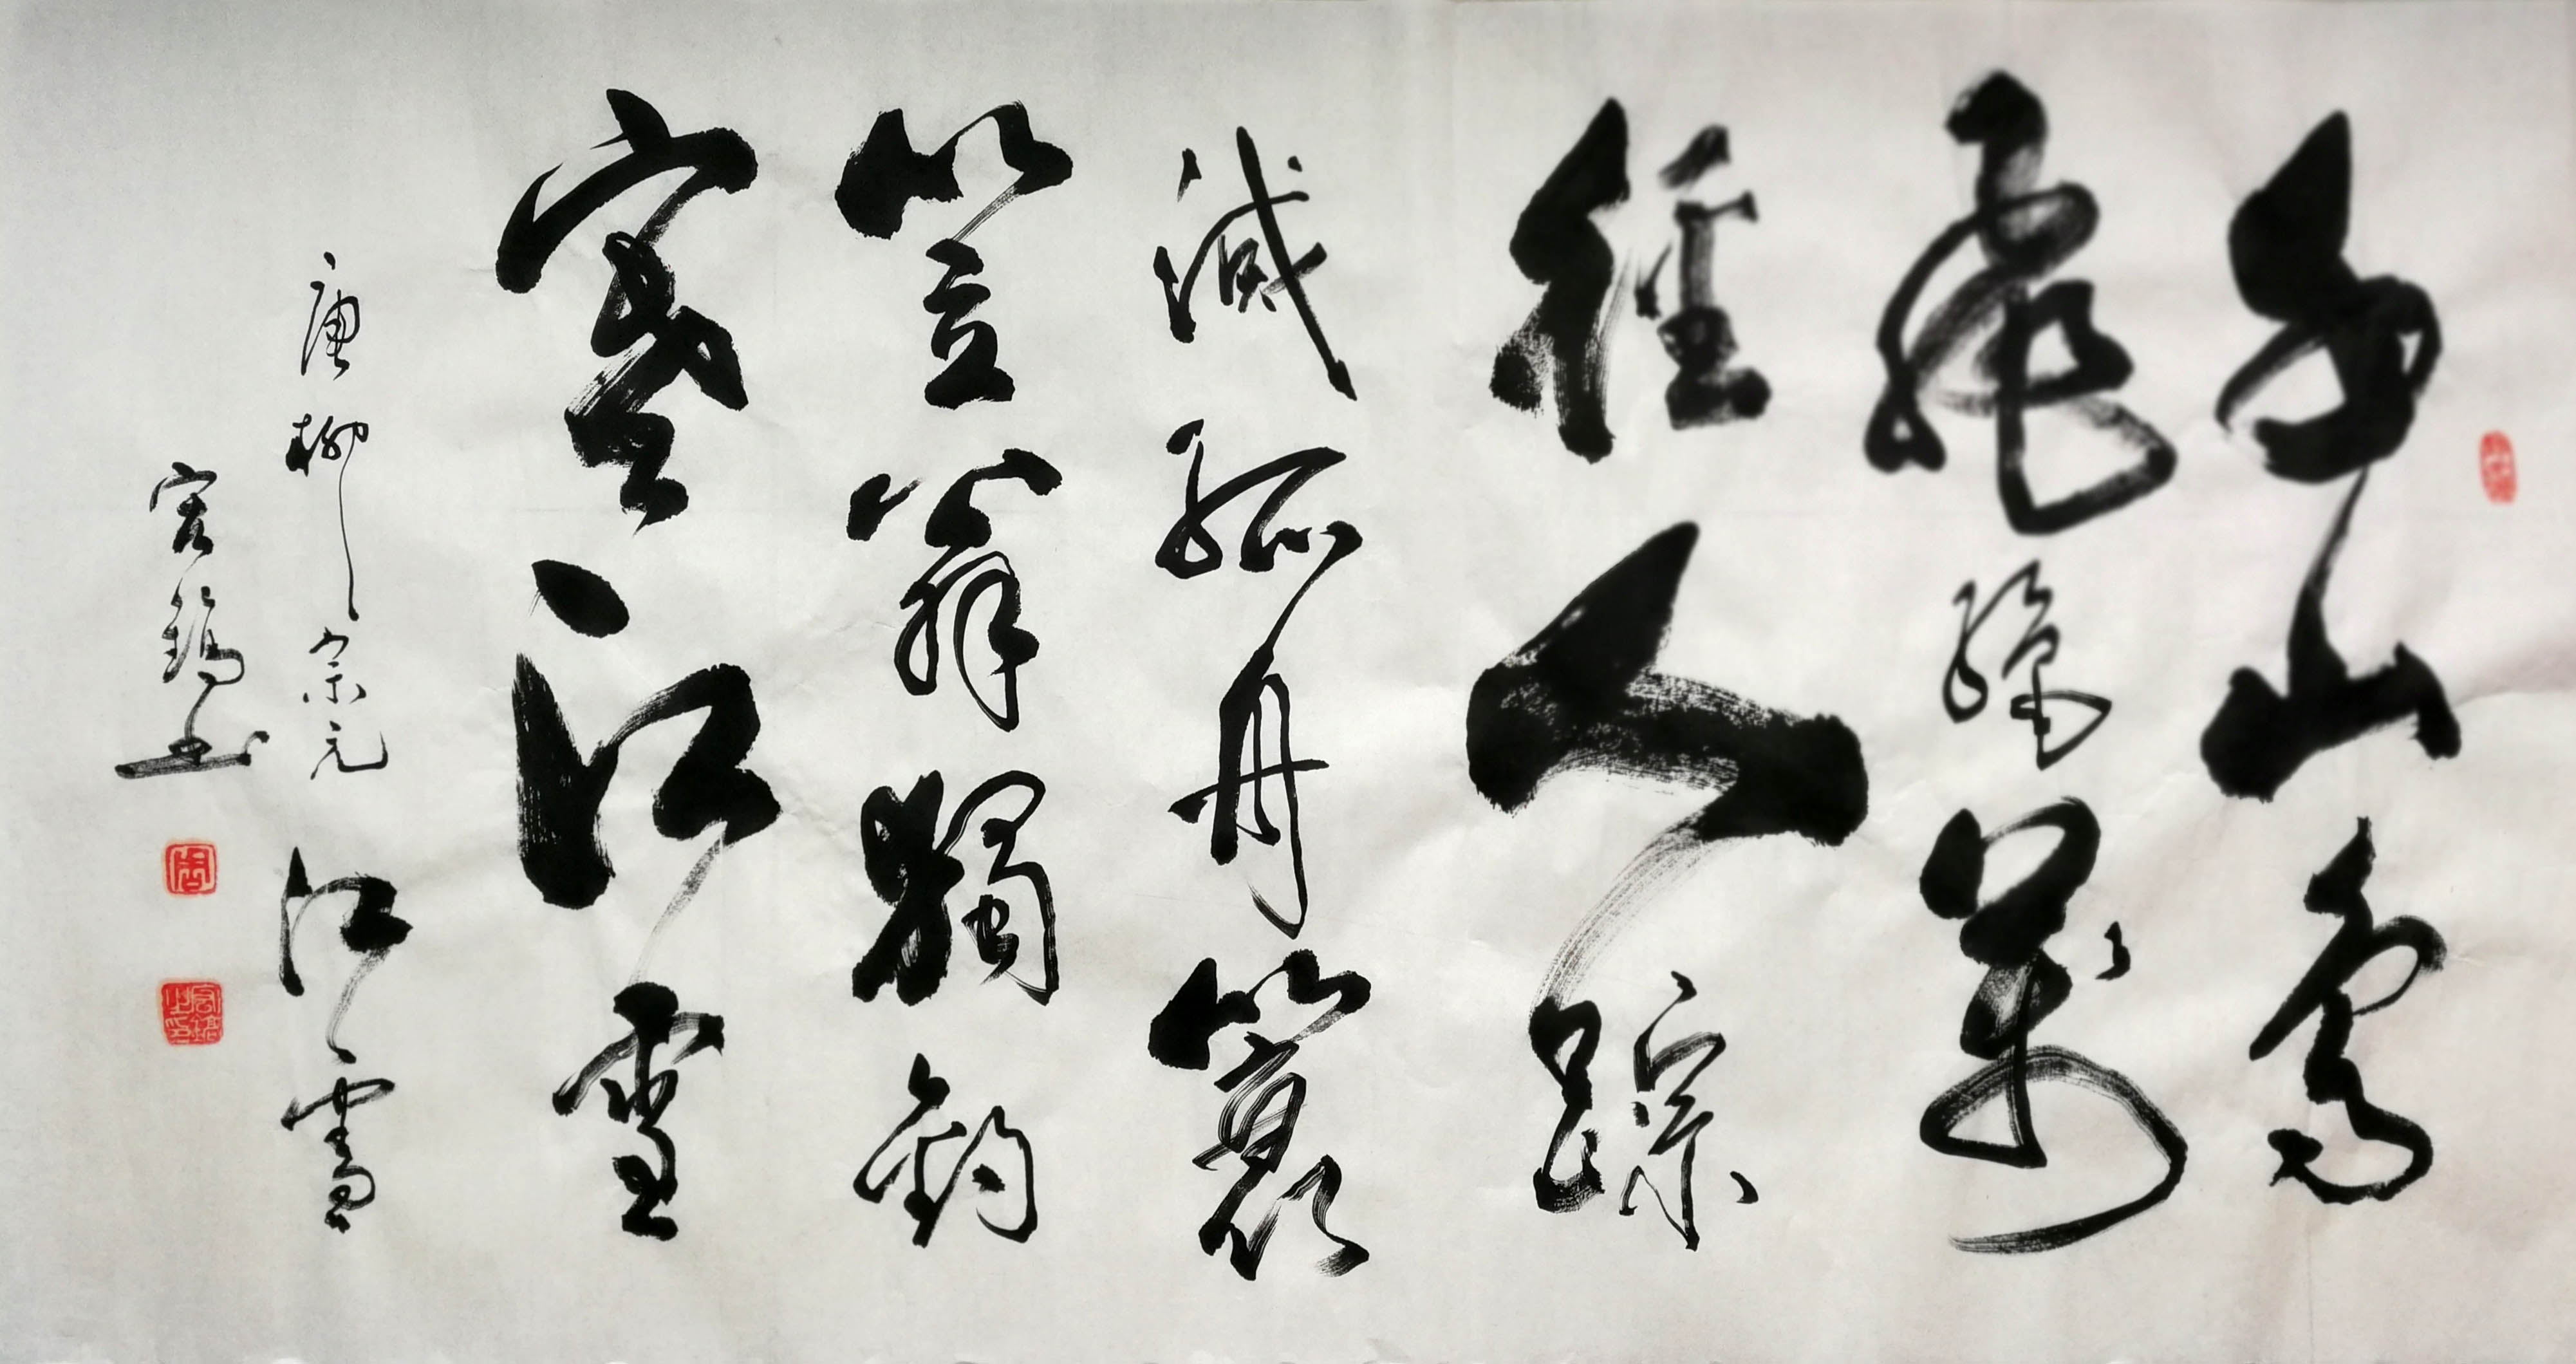 千山鳥
飛絕萬
徑人踪
滅孤舟蓑
笠翁獨釣
寒江雪
唐柳宗元江雪
宏鎬書